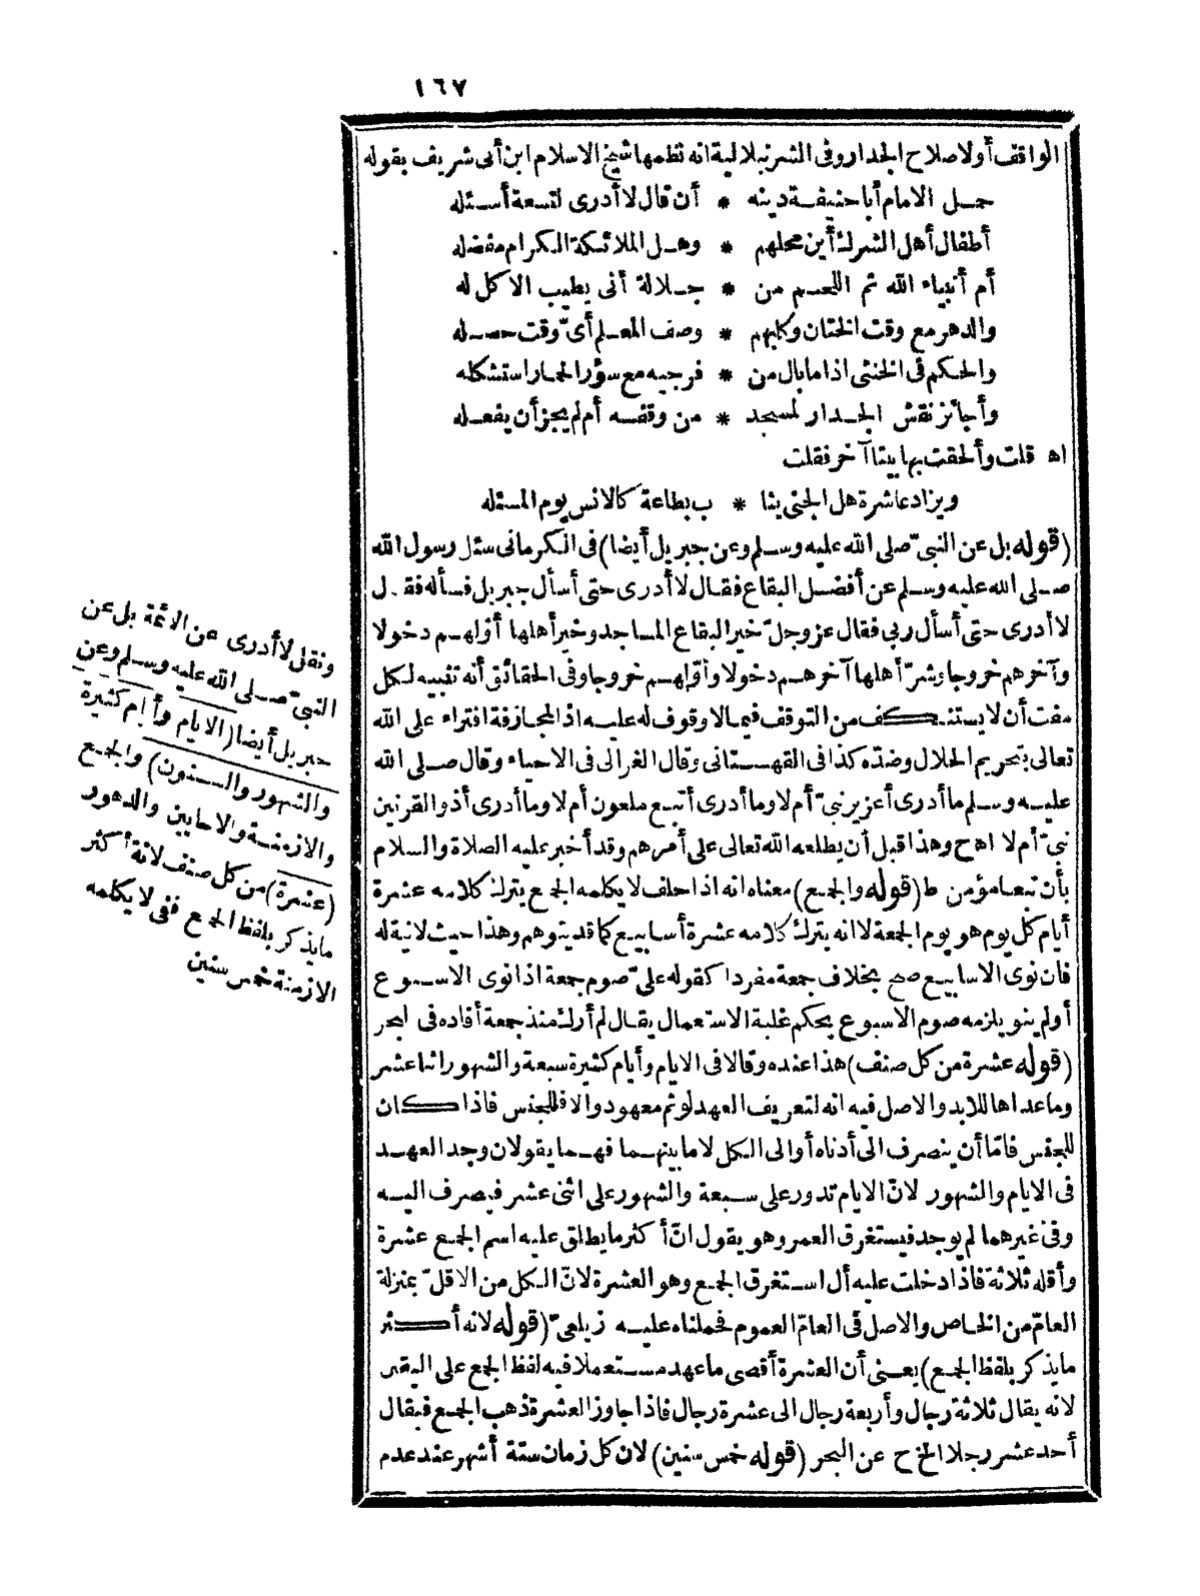 ١٦٧
الواقف أو لاصلاح الجدار وفى الشرنبلالية انه نظمها شيخ الاسلام ابن أبى شريف بقوله
حمل الامام أبا حنيفة دينه * أن قال لا أدرى لتسعة أسئله
أطفال أهل الشرك أين محلهم * وهل الملائكة الكرام مفضله
أم أنبياء الله ثم اللحم من * جلالة أنى يطيب الاكل له
والدهر مع وقت الختان وكلبهم * وصف المعلم أىّ وقت حصله
والحكم فى الخنثى اذا ما بال من * فرجيه مع سؤر الحمار استشكله
وأجائز نقش الجدار لمسجد * من وقفه أم لم يجز أن يفعله
اه قلت وألحقت بها بيتا آخر فقلت
ويزاد عاشرة هل الجنى يثا * ب بطاعة كالانس يوم المسئله
(قوله بل عن النبىّ صلى الله عليه وسلم وعن جبريل أيضا) فى الكرمانى سئل رسول الله
صلى الله عليه وسلم عن أفضل البقاع فقال لا أدرى حتى أسأل جبريل فسأله فقال
لا أدرى حتى أسأل ربى فقال عز وجلّ خير البقاع المساجد وخير أهلها أوّلهم دخولا
وآخرهم خروجا وشرّ أهلها آخرهم دخولا وأوّلهم خروجا وفى الحقائق أنه تنبيه لكل
مفت أن لا يستنكف من التوقف فيما لا وقوف له عليه اذ المجازفة افتراء على الله
تعالى بتحريم الحلال وضدّه كذا فى القهستانى وقال الغزالى فى الاحياء وقال صلى الله
عليه وسلم ما أدرى أعزير نبىّ أم لا وما أدرى أتبع ملعون أم لا وما أدرى أذو القرنين
نبىّ أم لا اه ح وهذا قبل أن يطلعه الله تعالى على أمرهم وقد أخبر عليه الصلاة والسلام
بأن تبعا مؤمن ط (قوله والجمع) معناه انه اذا حلف لا يكلمه الجمع يترك كلامه عشرة
أيام كل يوم هو يوم الجمعة لا انه يترك كلامه عشرة أسابيع كما قد يتوهم وهذا حيث لا نية له
فان نوى الاسابيع صح بخلاف جمعة مفردا كقوله علىّ صوم جمعة اذا نوى الاسبوع
أو لم ينو يلزمه صوم الاسبوع بحكم غلبة الاستعمال يقال لم أرك منذ جمعة أفاده فى البحر
(قوله عشرة من كل صنف) هذا عنده وقالا فى الايام وأيام كثيرة سبعة والشهور اثنا عشر
وما عداها للابد والاصل فيه انه لتعريف العهد لو ثم معهود والا فللجنس فاذا كان
للجنس فامّا أن ينصرف الى أدناه أو الى الكل لا ما بينهما فهما يقولان وجد العهد
فى الايام والشهور لانّ الايام تدور على سبعة والشهور على اثنى عشر فيصرف اليه
وفى غيرهما لم يوجد فيستغرق العمر وهو يقول انّ أكثر ما يطلق عليه اسم الجمع عشرة
وأقله ثلاثة فاذا دخلت عليه أل استغرق الجمع وهو العشرة لانّ الكل من الاقلّ بمنزلة
العامّ من الخاص والاصل فى العامّ العموم فحملناه عليه زيلعىّ (قوله لانه أكثر
ما يذكر بلفظ الجمع) يعنى أن العشرة أقصى ما عهد مستعملا فيه لفظ الجمع على اليقين
لانه يقال ثلاثة رجال وأربعة رجال الى عشرة رجال فاذا جاوز العشرة ذهب الجمع فيقال
أحد عشر رجلا الخ ح عن البحر (قوله خمس سنين) لان كل زمان ستة أشهر عند عدم
ونقل لا أدرى عن الائمّة بل عن
النبىّ صلى الله عليه وسلم وعن
جبريل أيضا (الايام وأيام كثيرة
والشهور والسنون) والجمع
والازمنة والاحايين والدهور
(عشرة) من كل صنف لانه أكثر
ما يذكر بلفظ الجمع ففى لا يكلمه
الازمنة خمس سنين